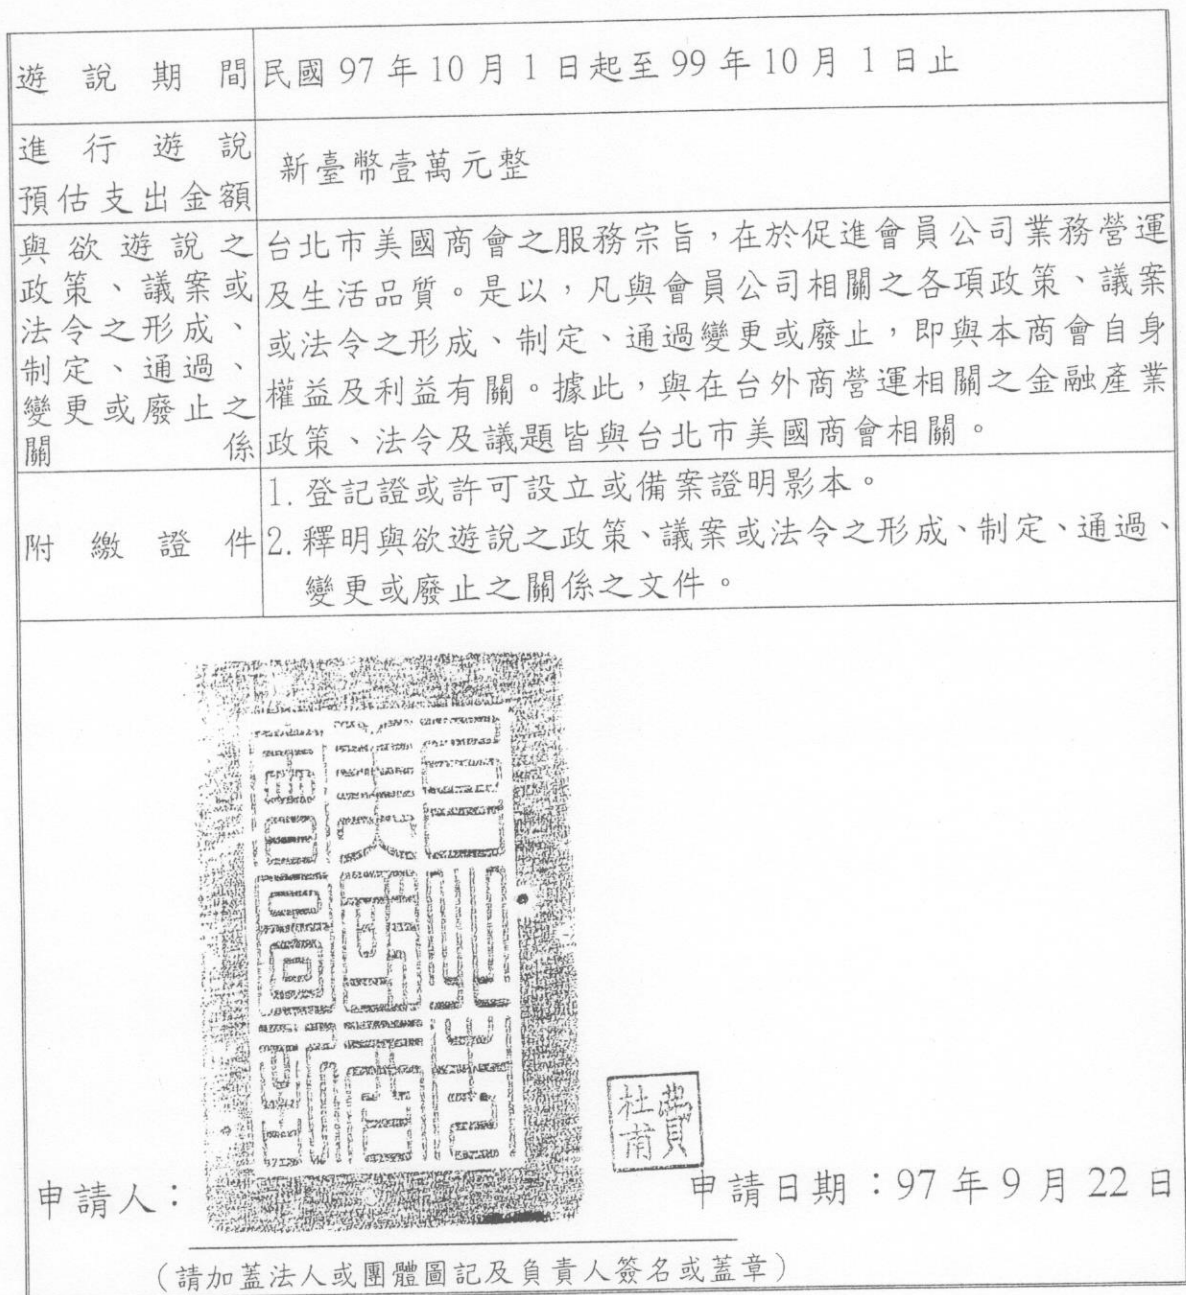 遊說期間 民國97年10月1日起至99年10月1日止
進行遊說
預估支出金額
新臺幣壹萬元整
與欲遊說之
政策、議案或
法令之形成、
制定、通過、
變更或廢止之
關係
台北市美國商會之服務宗旨,在於促進會員公司業務營運
及生活品質。是以,凡與會員公司相關之各項政策、議案
或法令之形成、制定、通過變更或廢止,即與本商會自身
權益及利益有關。據此,與在台外商營運相關之金融產業
政策、法令及議題皆與台北市美國商會相關。
附繳證件
1.登記證或許可設立或備案證明影本。
2.釋明與欲遊說之政策、議案或法令之形成、制定、通過、
變更或廢止之關係之文件。
申請人:
申請日期:97年9月22日
(請加蓋法人或團體圖記及負責人簽名或蓋章)